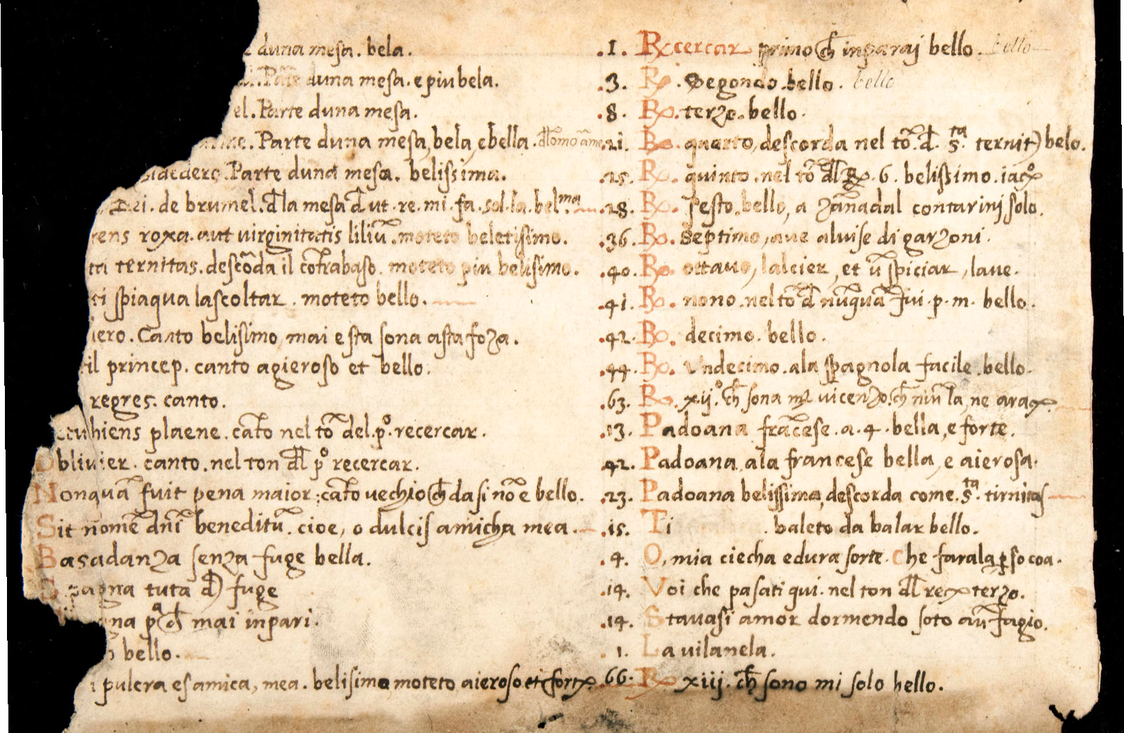 duna mesa. bela.
Parte duna mesa. e piu bela.
el. Parte duna mesa.
Parte duna mesa, bela, e bella.
Parte duna mesa. belissima.
Dei. de brumel. đla mesa đ ut. re. mi. fa. sol. la. bel.ᵐᵃ
ens roxa. aut virginitatis liliũ. moteto beletisimo.
ternitas. descõda il cõtrabaso. moteto piu belisimo.
ti spiaqua lascoltar. moteto bello.
iero. Canto belisimo, mai e sta sona asta foza.
il princep. canto agieroso et bello.
regres. canto.
hiens plaene. cãto nel tõ del. p.º recercar.
Oblivier. canto. nel ton đl pº recercar.
Nonquã fuit pena maior: cãto vechio ch da si nõ e bello.
Sit nomẽ dñi beneditũ. cioe, o dulcis amicha mea.
Basadanza senza fuge bella.
Spagna tuta đ fuge
gna pª ch mai inpari.
bello.
i pulcra es amica, mea. belisimo moteto aieroso et forte
.1. Recercar primo ch inparaj bello. bello
.3. Rº. Segondo. bello. bello
.8. Rº. terzo. bello.
.21. Rº. quarto, descorda nel tõ. đ. s.ᵗᵃ ternit) belo.
.25. Rº. quinto. nel tõ đl Rº. 6. belissimo.
.28. Rº. sesto. bello, a Zãnadal contarinj solo.
.36. Rº. Septimo, ave alvise di garzoni.
.40. Rº. ottavo, lalcier, et ũ spiciar, lave.
.41. Rº. nono. nel tõ đ nũquã fui. p. m. bello.
.42. Rº. decimo. bello.
.44. Rº. Undecimo. ala spagnola facile. bello.
.63. Rº. xijº. ch sona mº vicenzo. ch niũ la, ne
.13. Padoana frãcese. a. 4. bella, e forte.
.42. Padoana. ala francese bella, e aierosa.
.23. Padoana belissima, descorda come. s.ᵗᵃ tirnitas
.15. Ti baleto da balar bello.
.4. O, mia ciecha e dura sorte. Che farala
.14. Voi che pasati qui. nel ton đl reꝝ terzo.
.14. Stavasi amor dormendo soto aũ fagio.
.1. La vilanela.
66. Rº xiij. ch sono mi solo bello.